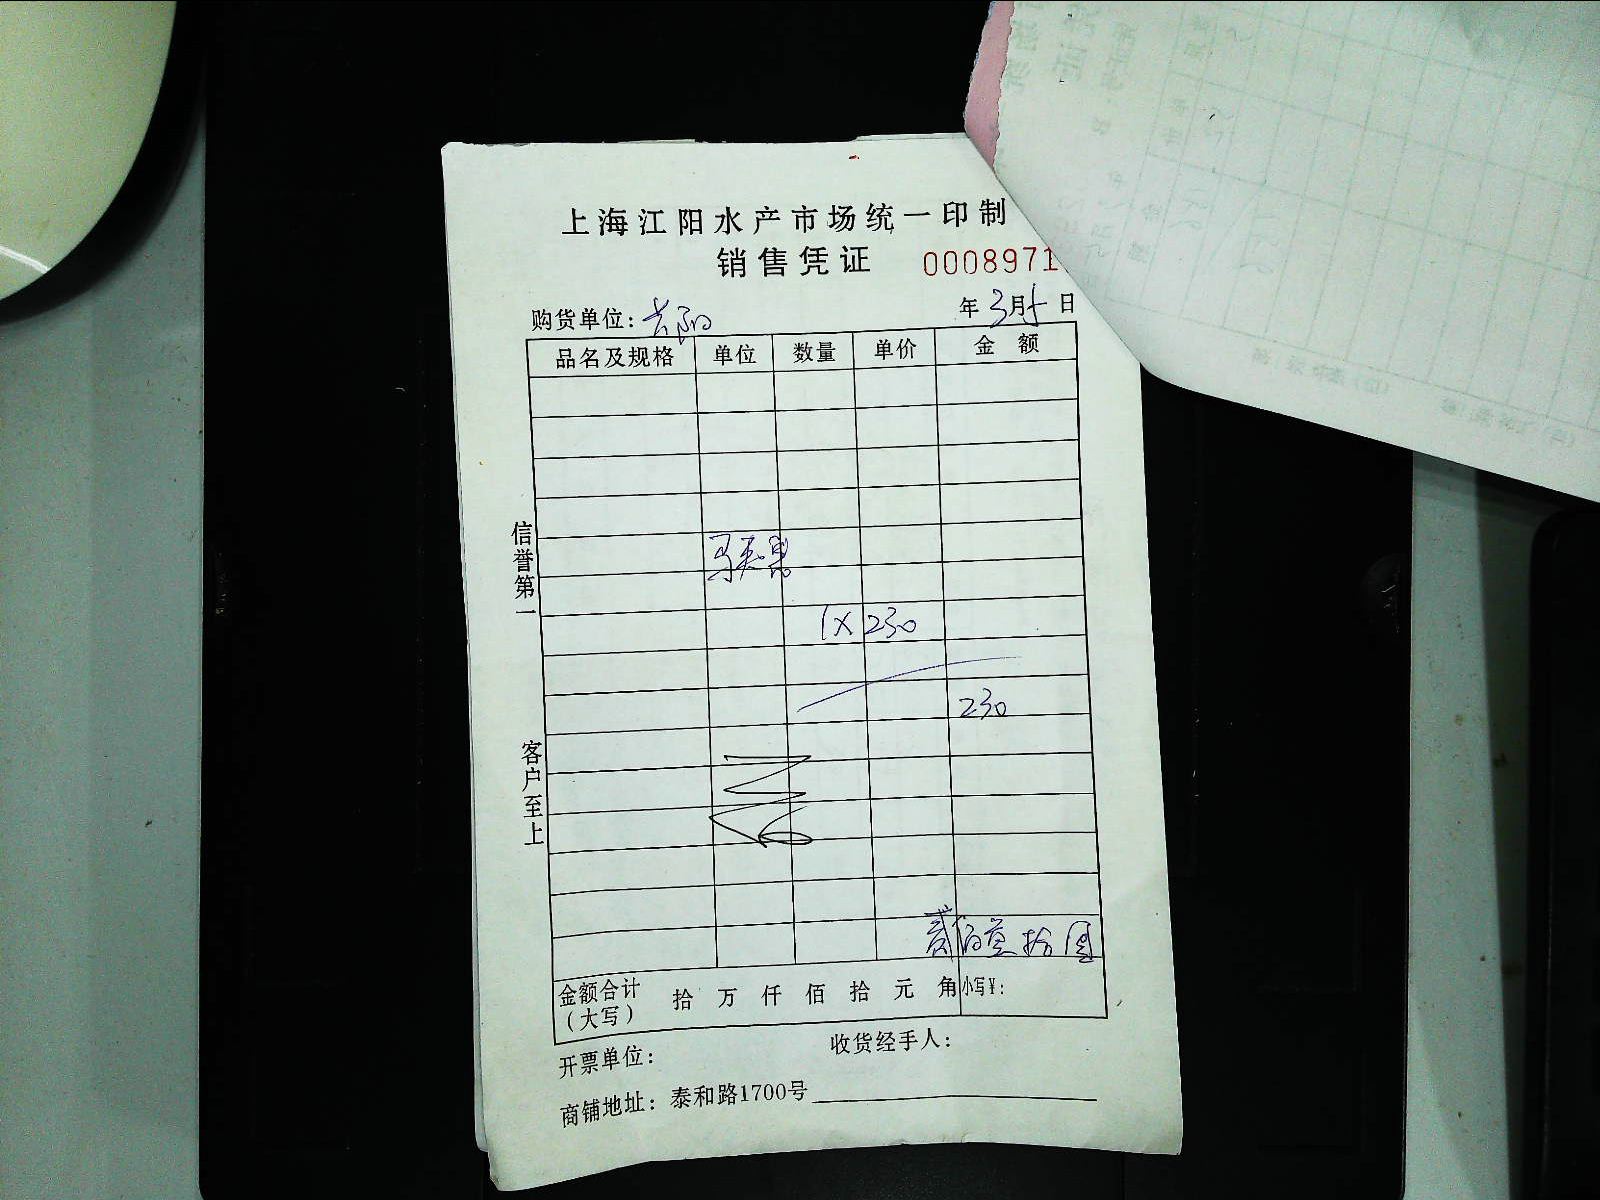 上海江阳水产市场统一印制
销售凭证 0008971
购货单位: 年 3月5日
品名及规格 单位 数量 单价 金额
1×230
230
贰佰叁拾圆
金额合计(大写) 拾 万 仟 佰 拾 元 角 小写¥:
开票单位: 收货经手人:
商铺地址: 泰和路1700号
信誉第一
客户至上